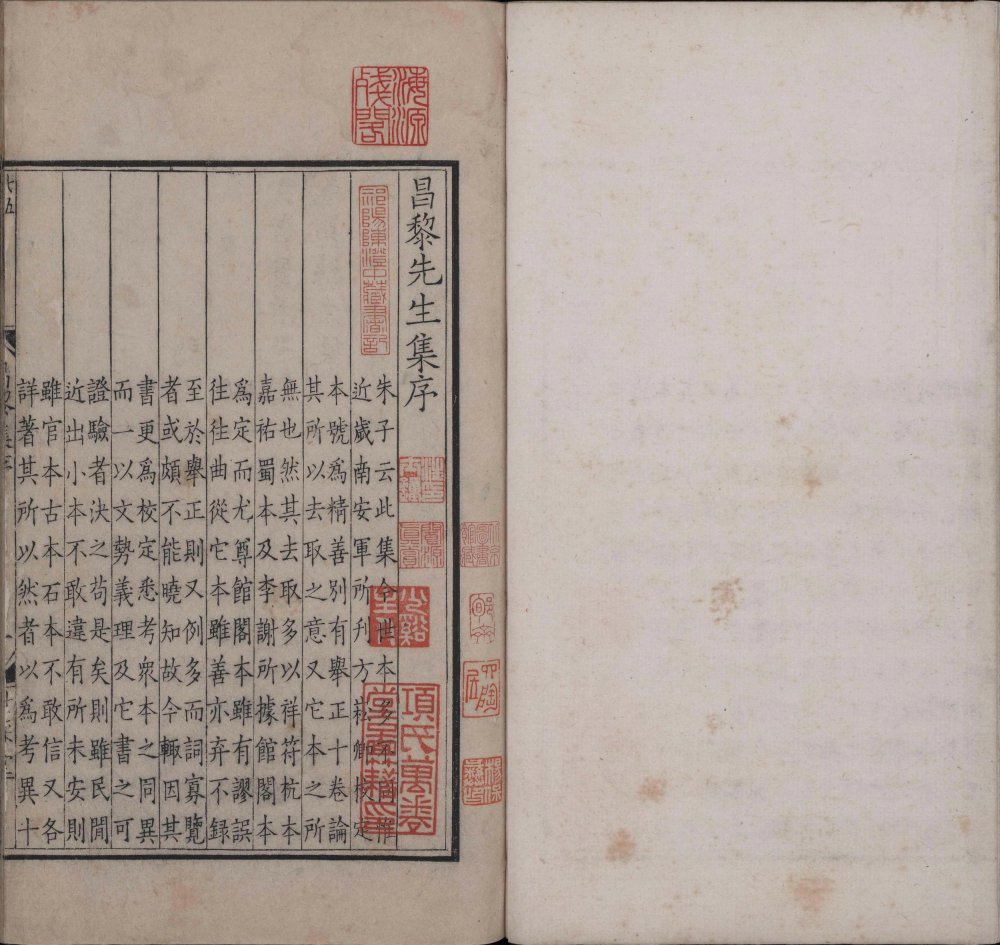 海源殘閣
昌黎先生集序
祁陽陳澄中藏書記
朱子云此集今世本多不同惟
近歲南安軍所刋方崧卿校定
本號爲精善別有舉正十卷論
其所以去取之意又它本之所
無也然其去取多以祥符杭本
嘉祐蜀本及李謝所據館閣本
爲定而尤尊館閣本雖有謬誤
往往曲從它本雖善亦弃不録
至於舉正則又例多而詞寡覽
者或頗不能曉知故今輒因其
書更爲校定悉考衆本之同異
而一以文勢義理及它書之可
證驗者決之苟是矣則雖民閒
近出小本不敢違有所未安則
雖官本古本石本不敢信又各
詳著其所以然者以爲考異十
少谿主人
項氏萬卷堂圖籍印